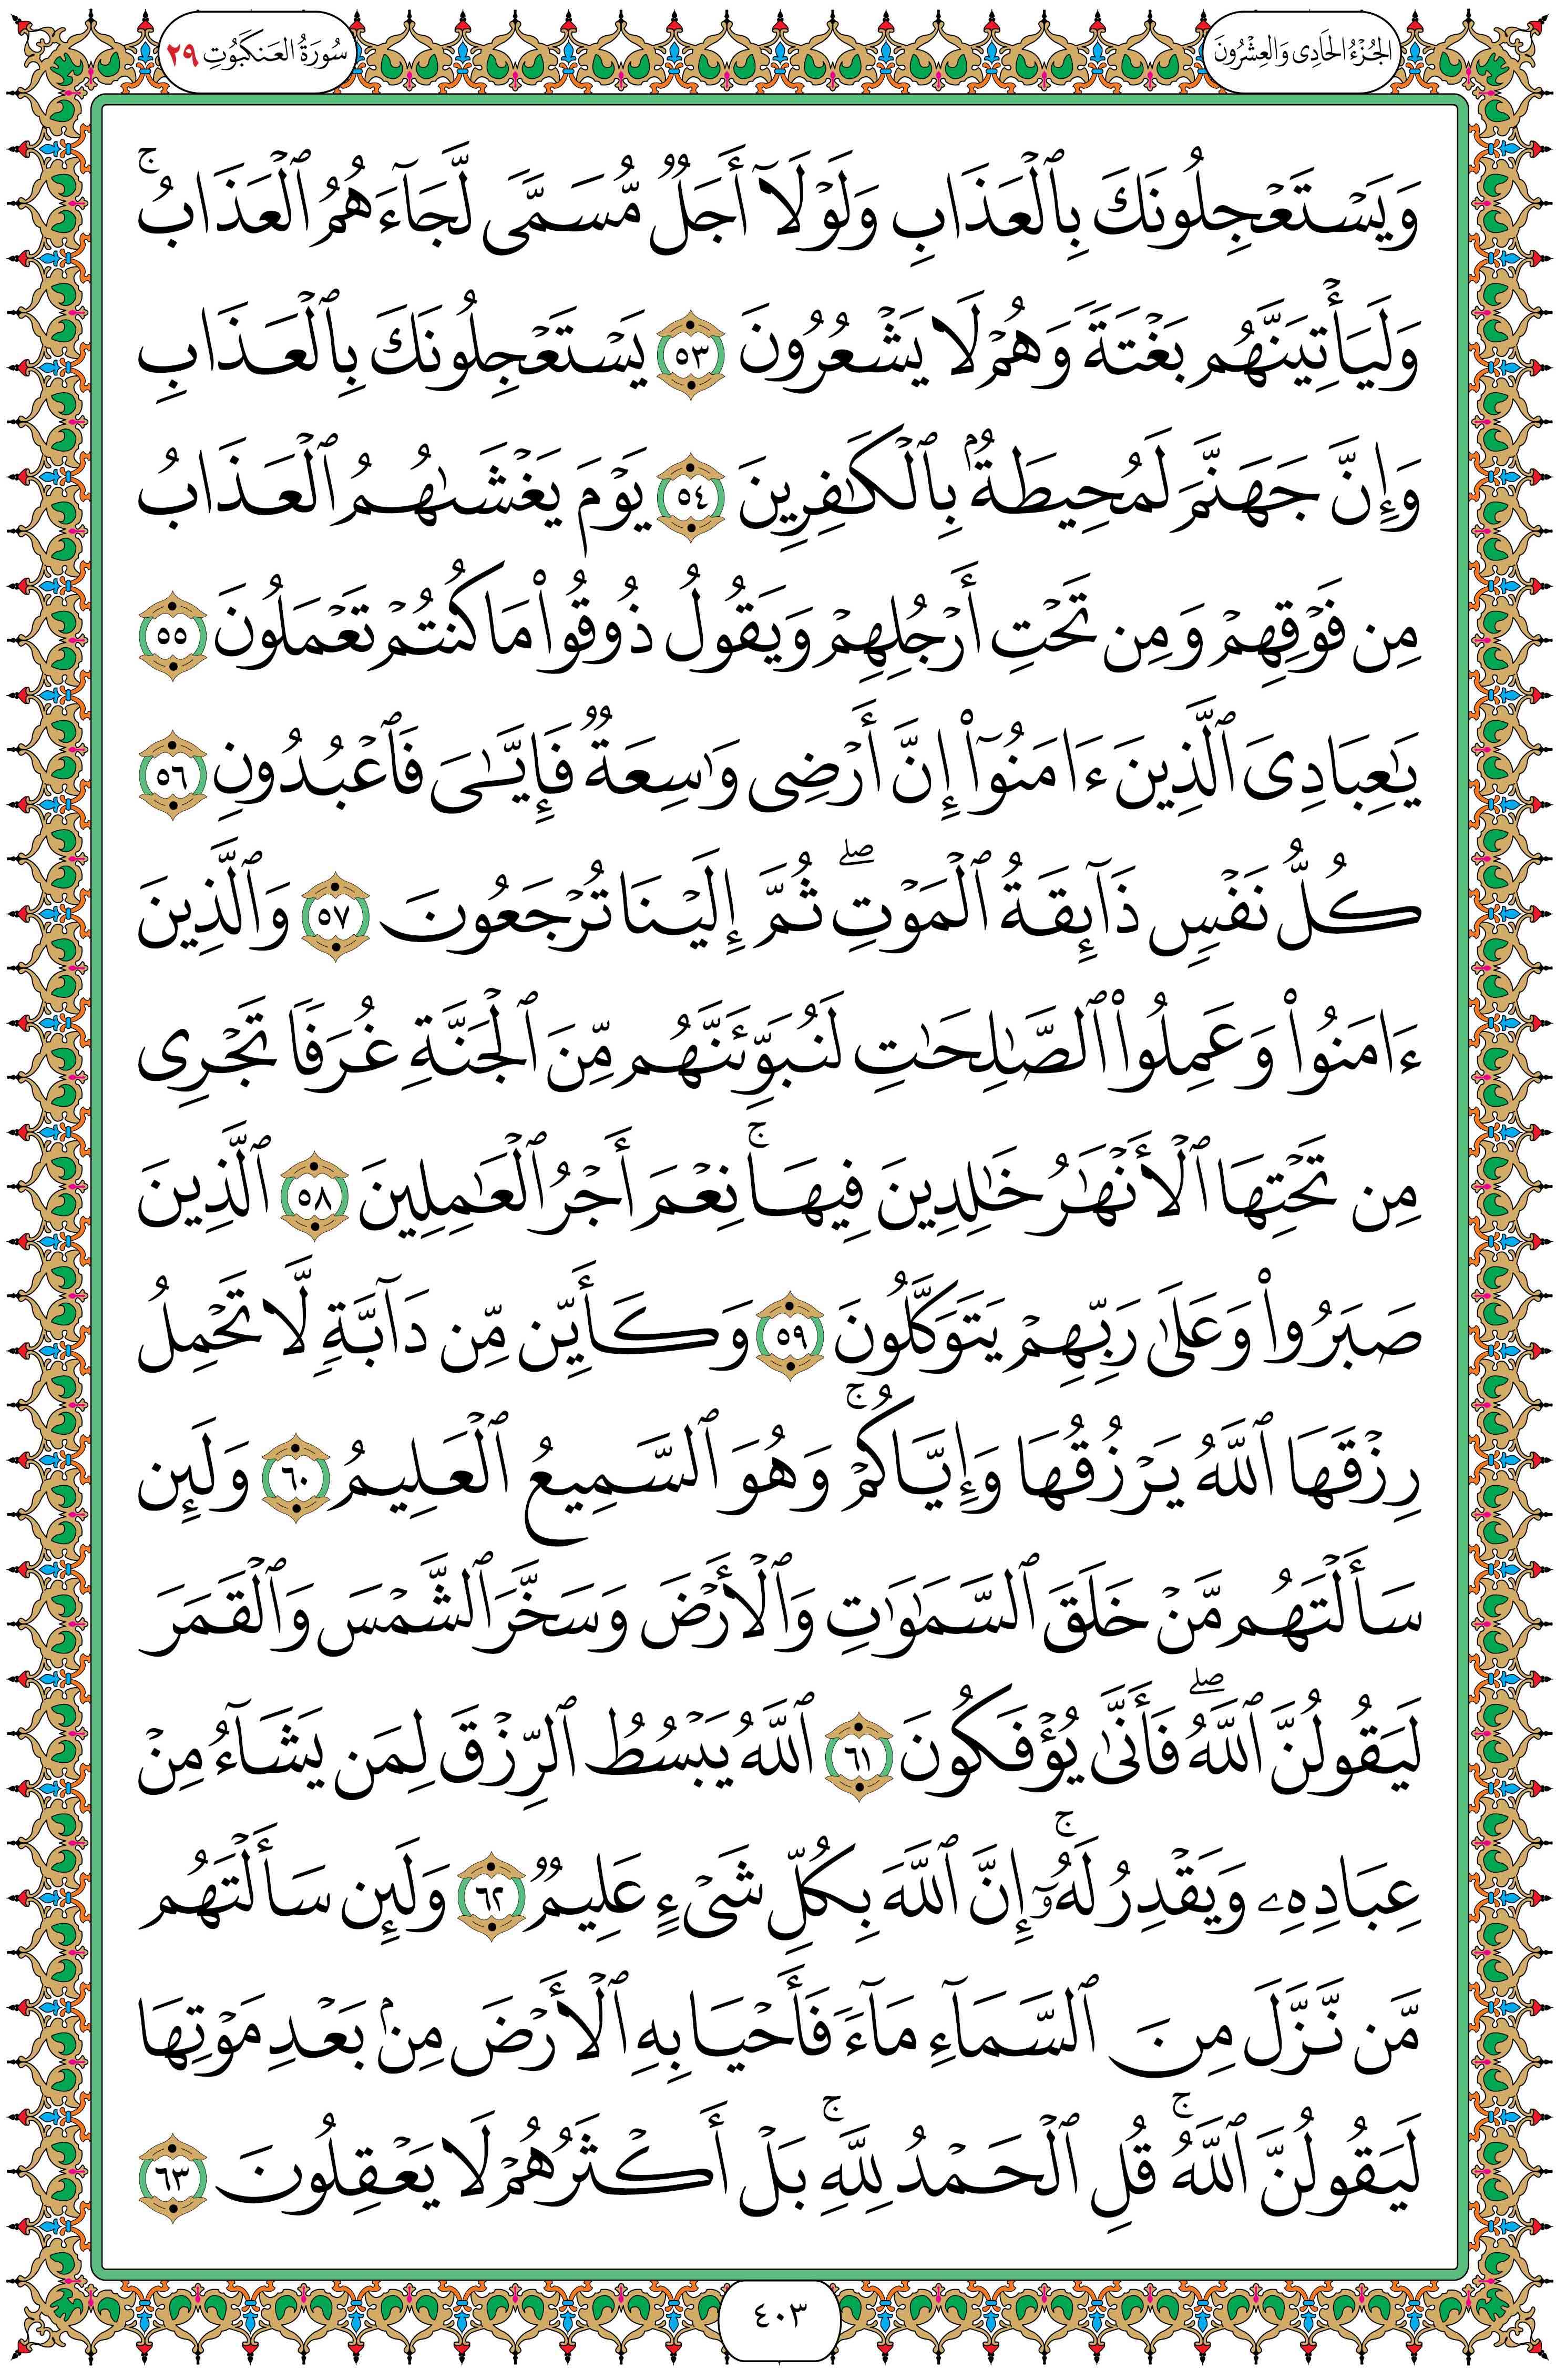 الجُزْءُ الحَادِى وَالعِشْرُونَ
سُورَةُ العَنكَبُوتِ ٢٩
وَيَسۡتَعۡجِلُونَكَ بِٱلۡعَذَابِ وَلَوۡلَآ أَجَلٞ مُّسَمّٗى لَّجَآءَهُمُ ٱلۡعَذَابُۚ
وَلَيَأۡتِيَنَّهُم بَغۡتَةٗ وَهُمۡ لَا يَشۡعُرُونَ ٥٣ يَسۡتَعۡجِلُونَكَ بِٱلۡعَذَابِ
وَإِنَّ جَهَنَّمَ لَمُحِيطَةُۢ بِٱلۡكَٰفِرِينَ ٥٤ يَوۡمَ يَغۡشَىٰهُمُ ٱلۡعَذَابُ
مِن فَوۡقِهِمۡ وَمِن تَحۡتِ أَرۡجُلِهِمۡ وَيَقُولُ ذُوقُواْ مَا كُنتُمۡ تَعۡمَلُونَ ٥٥
يَٰعِبَادِيَ ٱلَّذِينَ ءَامَنُوٓاْ إِنَّ أَرۡضِي وَٰسِعَةٞ فَإِيَّٰيَ فَٱعۡبُدُونِ ٥٦
كُلُّ نَفۡسٖ ذَآئِقَةُ ٱلۡمَوۡتِۖ ثُمَّ إِلَيۡنَا تُرۡجَعُونَ ٥٧ وَٱلَّذِينَ
ءَامَنُواْ وَعَمِلُواْ ٱلصَّٰلِحَٰتِ لَنُبَوِّئَنَّهُم مِّنَ ٱلۡجَنَّةِ غُرَفٗا تَجۡرِي
مِن تَحۡتِهَا ٱلۡأَنۡهَٰرُ خَٰلِدِينَ فِيهَاۚ نِعۡمَ أَجۡرُ ٱلۡعَٰمِلِينَ ٥٨ ٱلَّذِينَ
صَبَرُواْ وَعَلَىٰ رَبِّهِمۡ يَتَوَكَّلُونَ ٥٩ وَكَأَيِّن مِّن دَآبَّةٖ لَّا تَحۡمِلُ
رِزۡقَهَا ٱللَّهُ يَرۡزُقُهَا وَإِيَّاكُمۡۚ وَهُوَ ٱلسَّمِيعُ ٱلۡعَلِيمُ ٦٠ وَلَئِن
سَأَلۡتَهُم مَّنۡ خَلَقَ ٱلسَّمَٰوَٰتِ وَٱلۡأَرۡضَ وَسَخَّرَ ٱلشَّمۡسَ وَٱلۡقَمَرَ
لَيَقُولُنَّ ٱللَّهُۖ فَأَنَّىٰ يُؤۡفَكُونَ ٦١ ٱللَّهُ يَبۡسُطُ ٱلرِّزۡقَ لِمَن يَشَآءُ مِنۡ
عِبَادِهِۦ وَيَقۡدِرُ لَهُۥٓۚ إِنَّ ٱللَّهَ بِكُلِّ شَيۡءٍ عَلِيمٞ ٦٢ وَلَئِن سَأَلۡتَهُم
مَّن نَّزَّلَ مِنَ ٱلسَّمَآءِ مَآءٗ فَأَحۡيَا بِهِ ٱلۡأَرۡضَ مِنۢ بَعۡدِ مَوۡتِهَا
لَيَقُولُنَّ ٱللَّهُۚ قُلِ ٱلۡحَمۡدُ لِلَّهِۚ بَلۡ أَكۡثَرُهُمۡ لَا يَعۡقِلُونَ ٦٣
٤٠٣